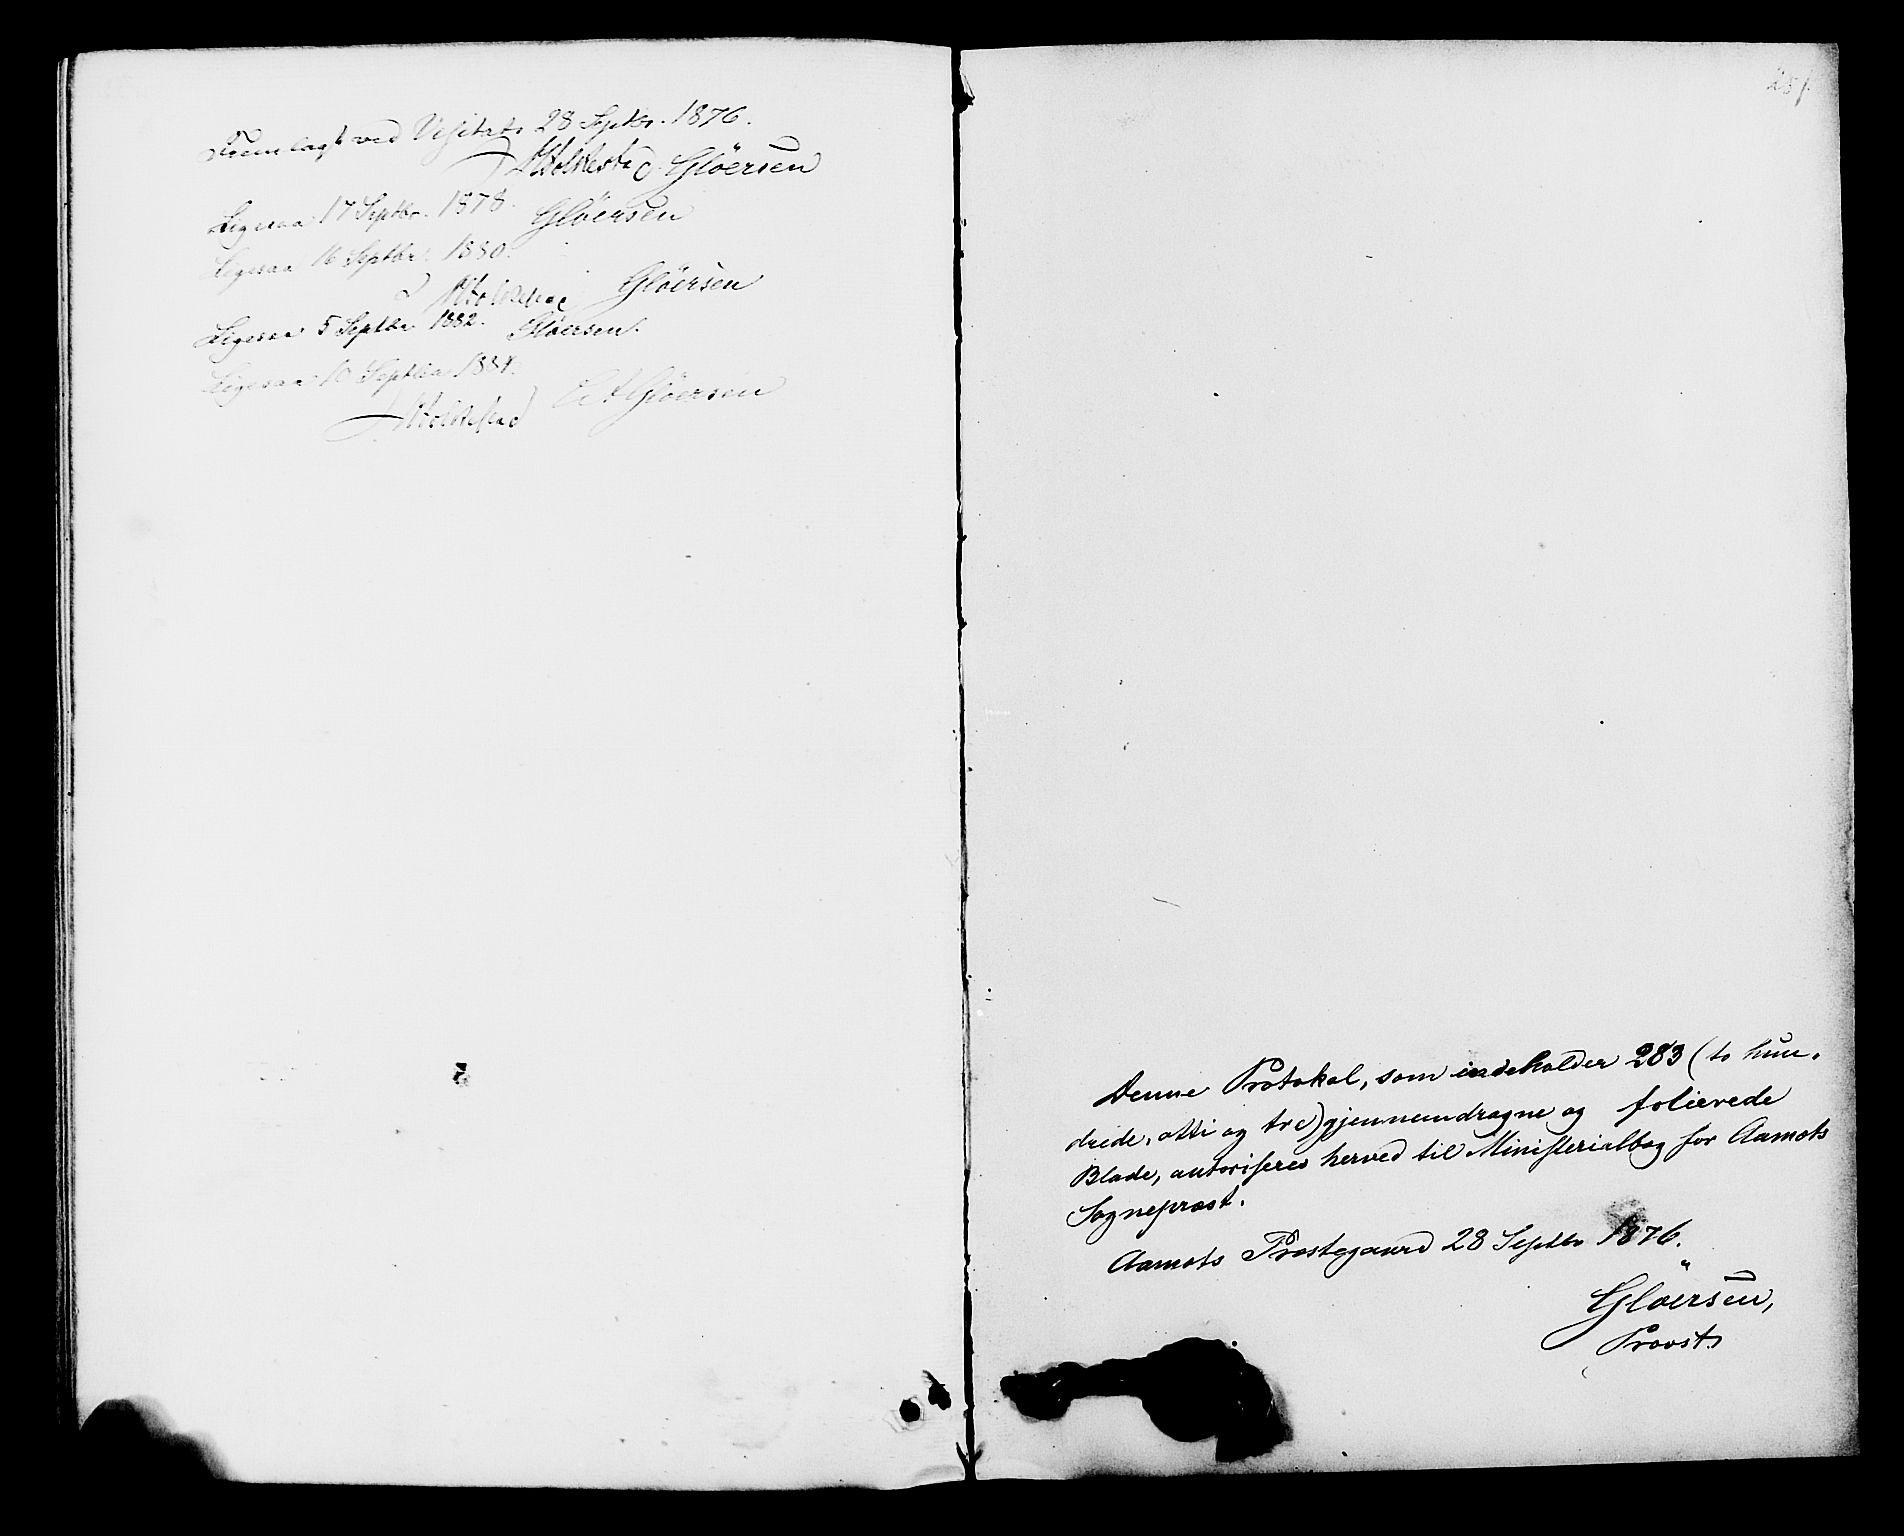 Fremlagt ved Visitats 28 Septbr. 1876.
Gløersen
Ligesaa 17 Septbr. 1878. Gløersen
Ligesaa 16 Septbr. 1880.
Gløersen
Ligesaa 5 Septbr 1882. Gløersen.
Ligesaa 10 Septbr 1884.
Gløersen
Denne Protokol, som indeholder 283 (to hun-
drede, otti og tre) gjennemdragne og folierede
Blade, autoriseres herved til Ministerialbog for Aamots
Sogneprest.
Aamots Prestegaard 28 Septbr 1876.
Gløersen,
Provst